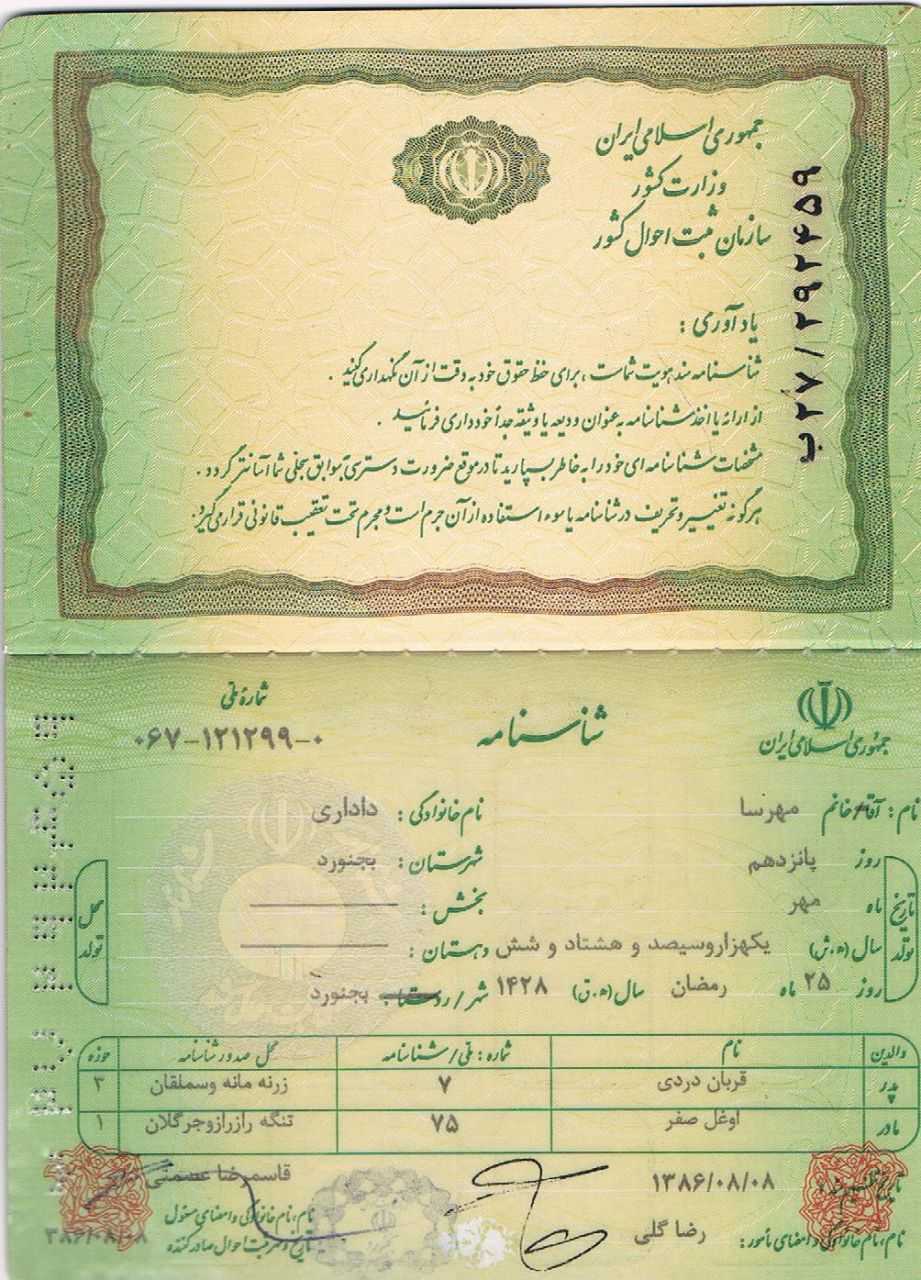 جمهوری اسلامی ایران
وزارت کشور
سازمان ثبت احوال کشور
ب۲۷/۲۹۲۴۵۹
یادآوری :
شناسنامه سند هویت شماست ، برای حفظ حقوق خود به دقت از آن نگهداری کنید .
از ارائه یا اخذ شناسنامه به عنوان ودیعه یا وثیقه جداً خودداری فرمائید .
مشخصات شناسنامه ای خود را به خاطر بسپارید تا در موقع ضرورت دسترسی بسوابق سجلی شما آسانتر گردد .
هرگونه تغییر و تحریف در شناسنامه یا سوء استفاده از آن جرم است و مجرم تحت تعقیب قانونی قرار می‌گیرد.
جمهوری اسلامی ایران
شناسنامه
شماره ملی
۰۶۷-۱۲۱۲۹۹-۰
نام : آقا/خانم مهرسا نام خانوادگی : داداری
تاریخ تولد
روز پانزدهم
ماه مهر
سال (ه.ش) یکهزاروسیصد و هشتاد و شش
روز ۲۵ ماه رمضان سال (ه.ق) ۱۴۲۸
محل تولد
شهرستان : بجنورد
بخش :
دهستان :
شهر/روستا : بجنورد
والدین نام شماره : ملی/شناسنامه محل صدور شناسنامه حوزه
پدر قربان دردی ۷ زرنه مانه وسملقان ۳
مادر اوغل صفر ۷۵ تنگه رازرازوجرگلان ۱
۱۳۸۶/۰۸/۰۸
قاسمرضا عصمتی
نام، نام خانوادگی و امضای مأمور : رضا گلی
نام، نام خانوادگی و امضای مسئول
تاریخ و مهر ثبت احوال صادرکننده
۱۳۸۶/۰۸/۰۸